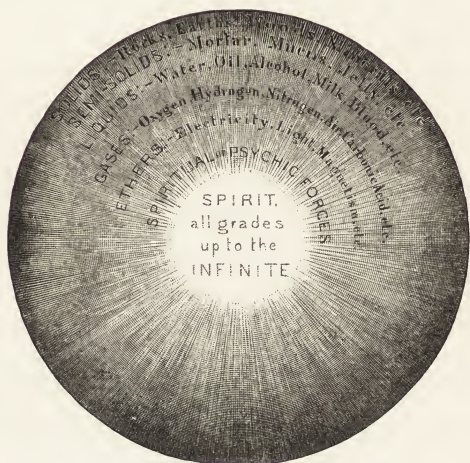 SOLIDS.—Rocks, Earths, Bones, Metals, etc.
SEMI-SOLIDS.—Mortar, Mucus, Jelly, etc.
LIQUIDS.—Water, Oil, Alcohol, Milk, Blood, etc.
GASES.—Oxygen, Hydrogen, Nitrogen, Air, Carbonic Acid, etc.
ETHERS.—Electricity, Light, Magnetism, etc.
SPIRITUAL or PSYCHIC FORCES
SPIRIT,
all grades
up to the
INFINITE